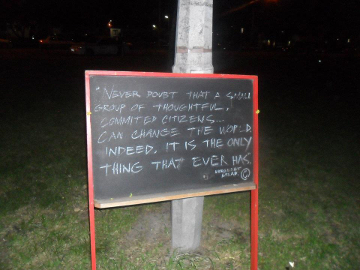 "NEVER DOUBT THAT A SMALL
GROUP OF THOUGHTFUL,
COMMITED CITIZENS...
CAN CHANGE THE WORLD
INDEED, IT IS THE ONLY
THING THAT EVER HAS
©